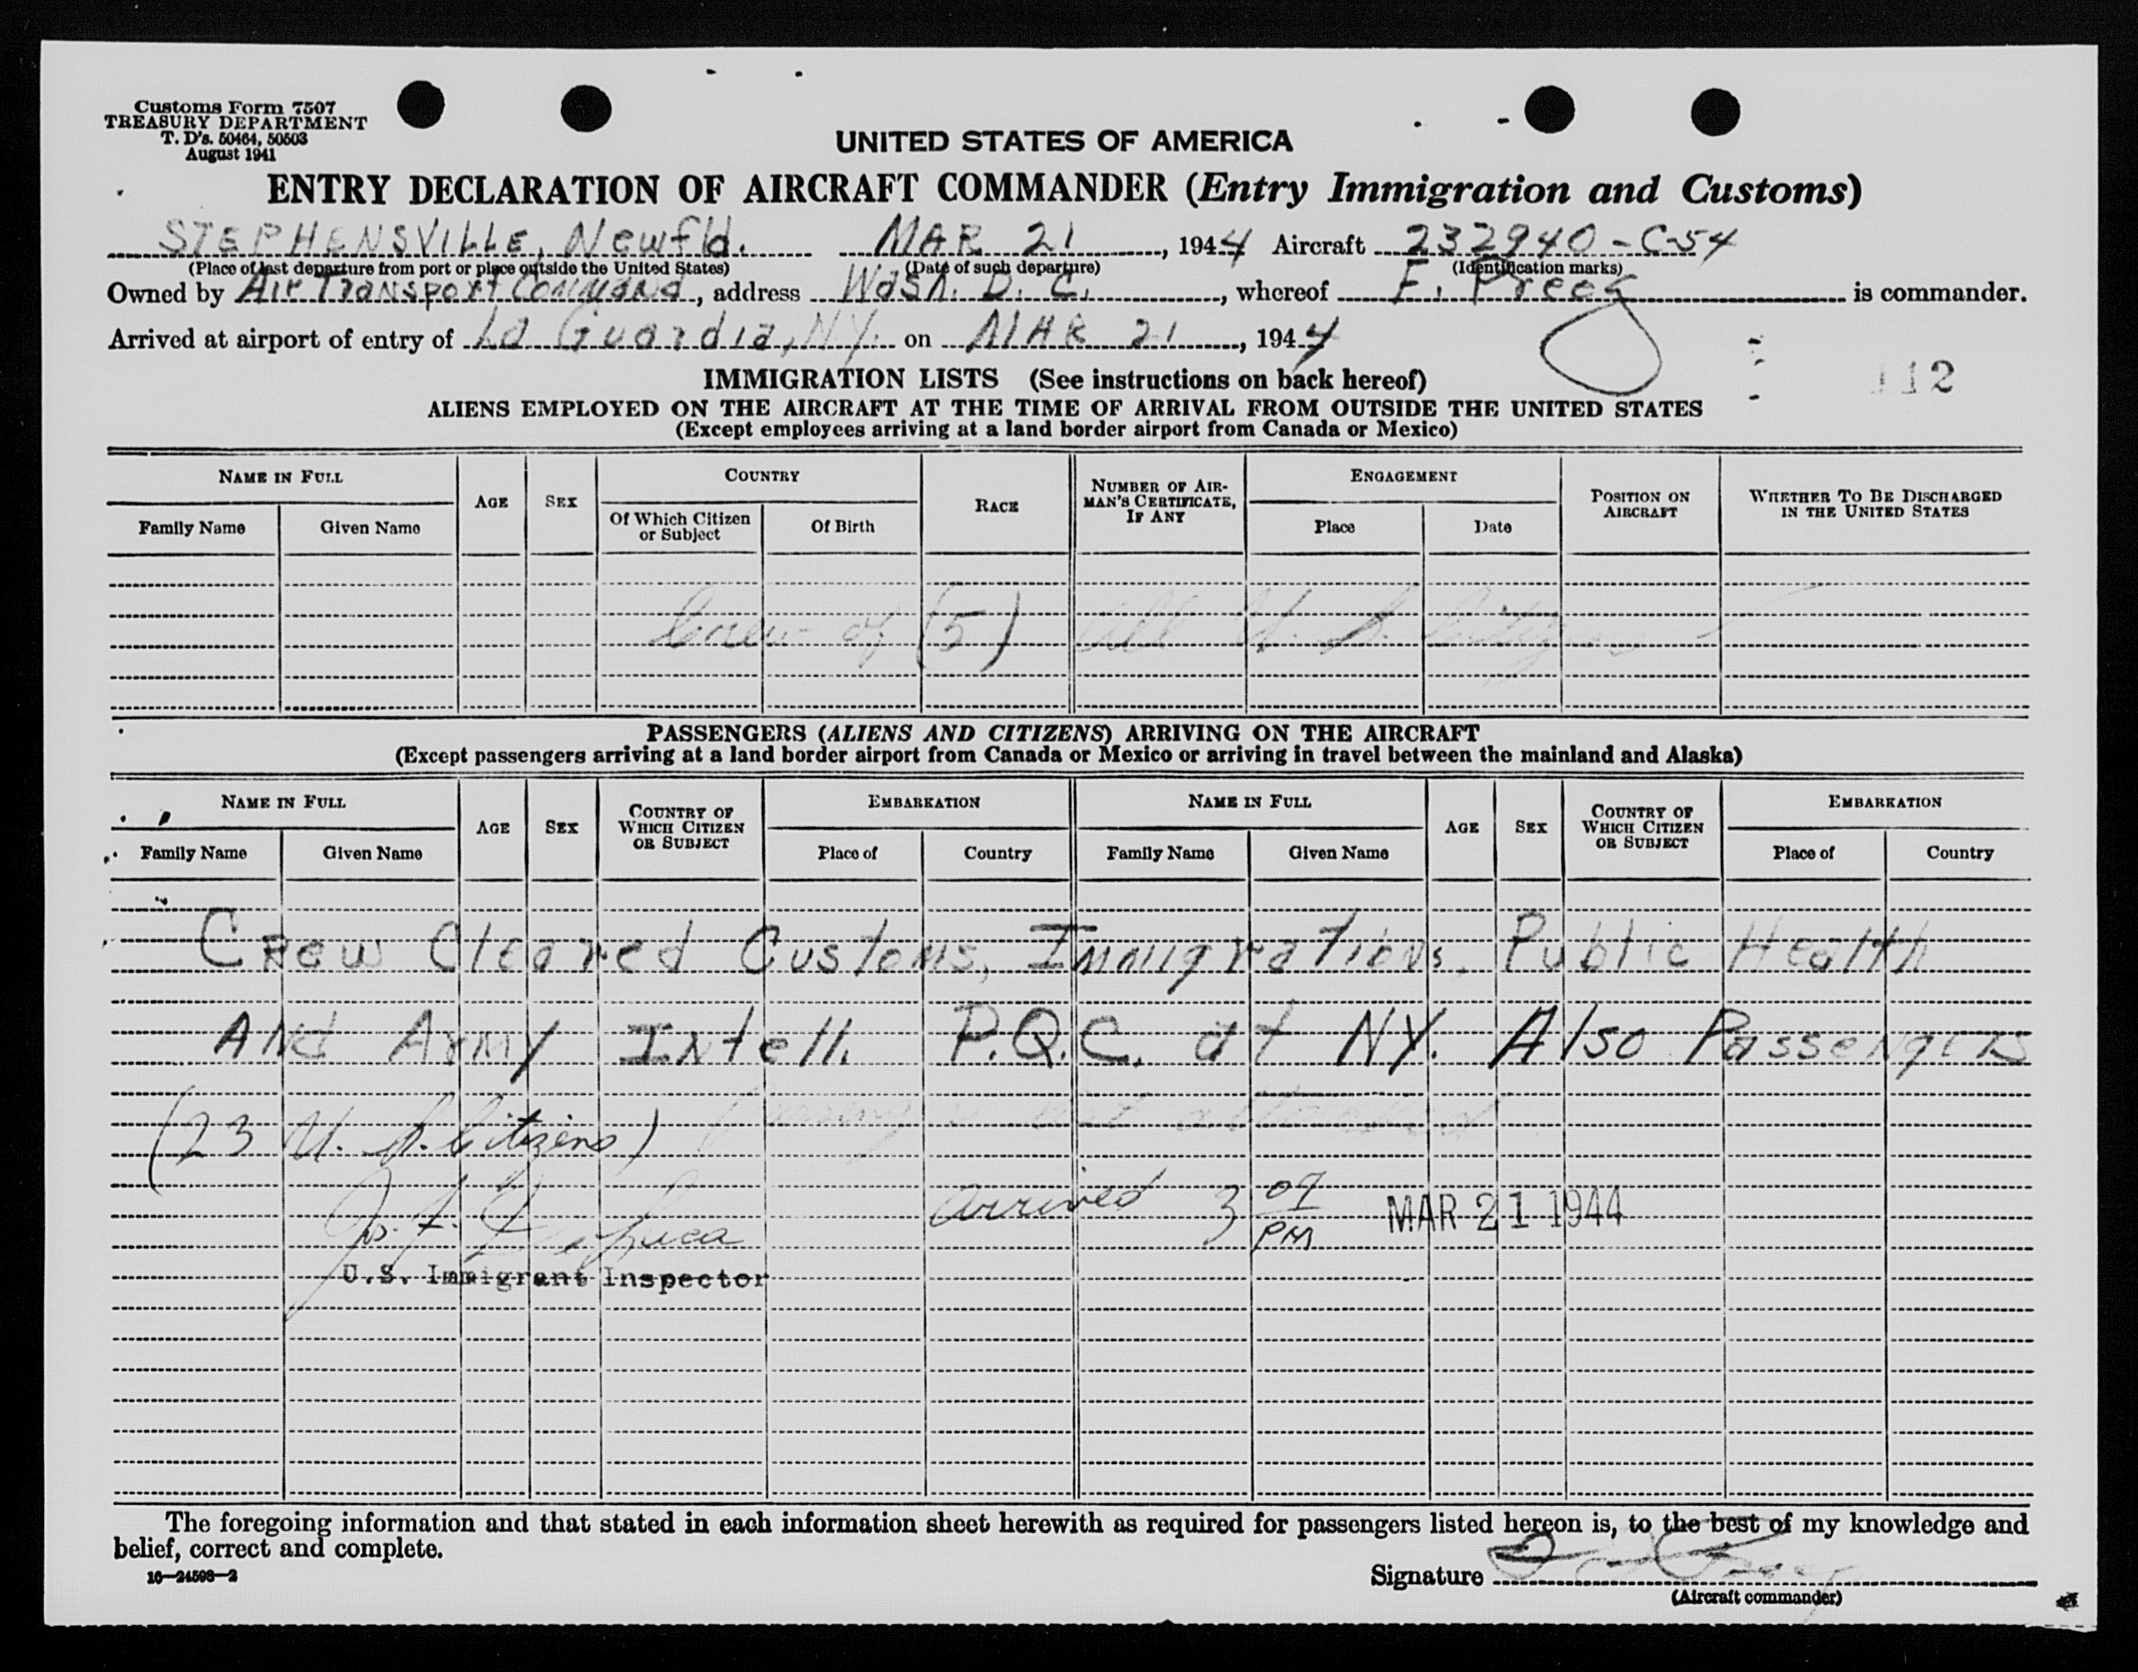 Customs Form 7507
TREASURY DEPARTMENT
T. D's. 50464, 50503
August 1941
UNITED STATES OF AMERICA
ENTRY DECLARATION OF AIRCRAFT COMMANDER (Entry Immigration and Customs)
STEPHENSVILLE, Newfld. MAR 21, 1944 Aircraft 232940-C-54
(Place of last departure from port or place outside the United States) (Date of such departure) (Identification marks)
Owned by Air Transport Command, address Wash. D. C., whereof F. Preeg is commander.
Arrived at airport of entry of La Guardia, NY. on MAR 21, 1944
112
IMMIGRATION LISTS (See instructions on back hereof)
ALIENS EMPLOYED ON THE AIRCRAFT AT THE TIME OF ARRIVAL FROM OUTSIDE THE UNITED STATES
(Except employees arriving at a land border airport from Canada or Mexico)
NAME IN FULL AGE SEX COUNTRY RACE NUMBER OF AIRMAN'S CERTIFICATE, IF ANY ENGAGEMENT POSITION ON AIRCRAFT WHETHER TO BE DISCHARGED IN THE UNITED STATES
Family Name Given Name Of Which Citizen or Subject Of Birth Place Date
Crew of (5) All U. S. Citizens
PASSENGERS (ALIENS AND CITIZENS) ARRIVING ON THE AIRCRAFT
(Except passengers arriving at a land border airport from Canada or Mexico or arriving in travel between the mainland and Alaska)
NAME IN FULL AGE SEX COUNTRY OF WHICH CITIZEN OR SUBJECT EMBARKATION NAME IN FULL AGE SEX COUNTRY OF WHICH CITIZEN OR SUBJECT EMBARKATION
Family Name Given Name Place of Country Family Name Given Name Place of Country
Crew Cleared Customs, Immigrations, Public Health
And Army Intell. P.Q.C. at NY. Also Passengers
(23 U. S. Citizens) attached
arrived 3 09 PM MAR 21 1944
U.S. Immigrant Inspector
The foregoing information and that stated in each information sheet herewith as required for passengers listed hereon is, to the best of my knowledge and
belief, correct and complete.
16—24598-2
Signature
(Aircraft commander)